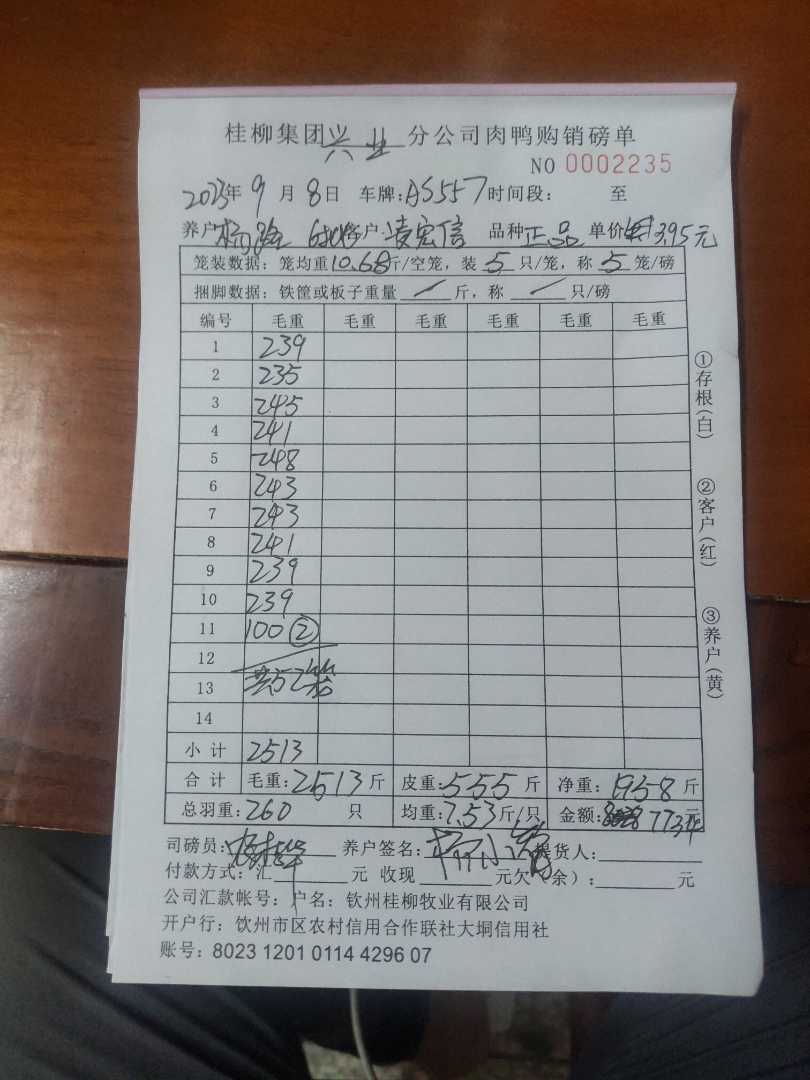 桂柳集团兴业分公司肉鸭购销磅单
NO 0002235
2023年9月8日 车牌:AS557 时间段: 至
养户:杨 客户:凌宏信 品种正品 单价 3.95元
笼装数据:笼均重10.68斤/空笼,装5只/笼,称5笼/磅
捆脚数据:铁筐或板子重量 / 斤,称 / 只/磅
编号 毛重 毛重 毛重 毛重 毛重 毛重
1 239
2 235
3 245
4 241
5 248
6 243
7 243
8 241
9 239
10 239
11 100②
12
13 共52笼
14
小计 2513
合计 毛重:2513斤 皮重:555斤 净重:1958斤
总羽重:260只 均重:7.53斤/只 金额: 7734元
司磅员: 养户签名:杨小 提货人:
付款方式:汇 元 收现 元欠(余): 元
公司汇款帐号:户名:钦州桂柳牧业有限公司
开户行:钦州市区农村信用合作联社大垌信用社
账号:8023 1201 0114 4296 07
①存根(白)
②客户(红)
③养户(黄)